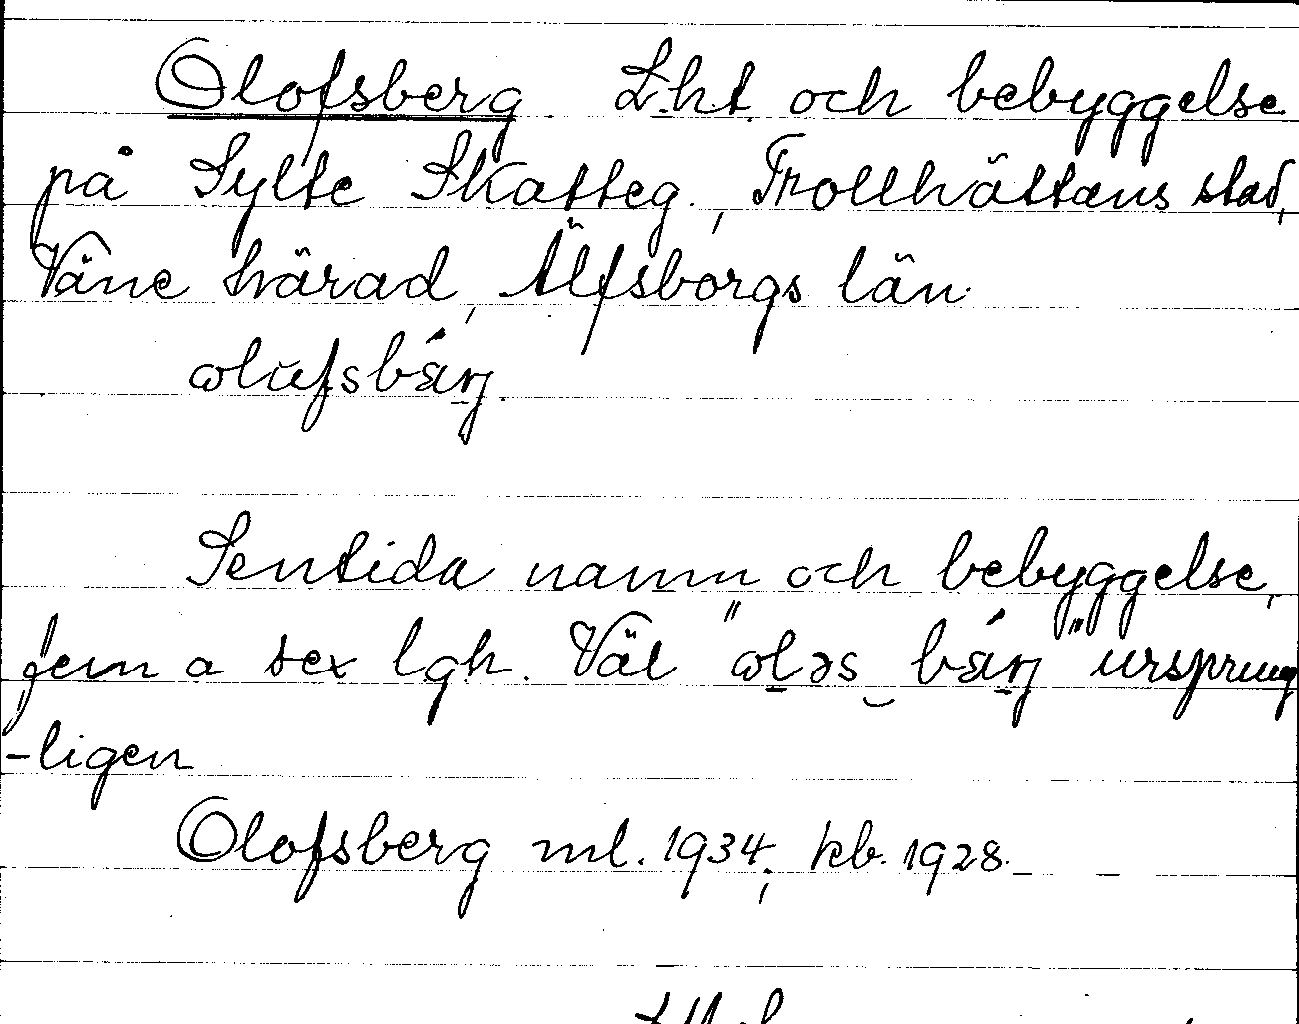 Olofsberg. Lht. och bebyggelse
på Sylte Skatteg., Trollhättans stad,
Väne härad, Älfsborgs län.
ωlŭfsbǽrj.
Sentida namn och bebyggelse,
fem a sex lgh. Väl "ωləs‿bǽrj" ursprung
-ligen
Olofsberg ml. 1934; kb. 1928.